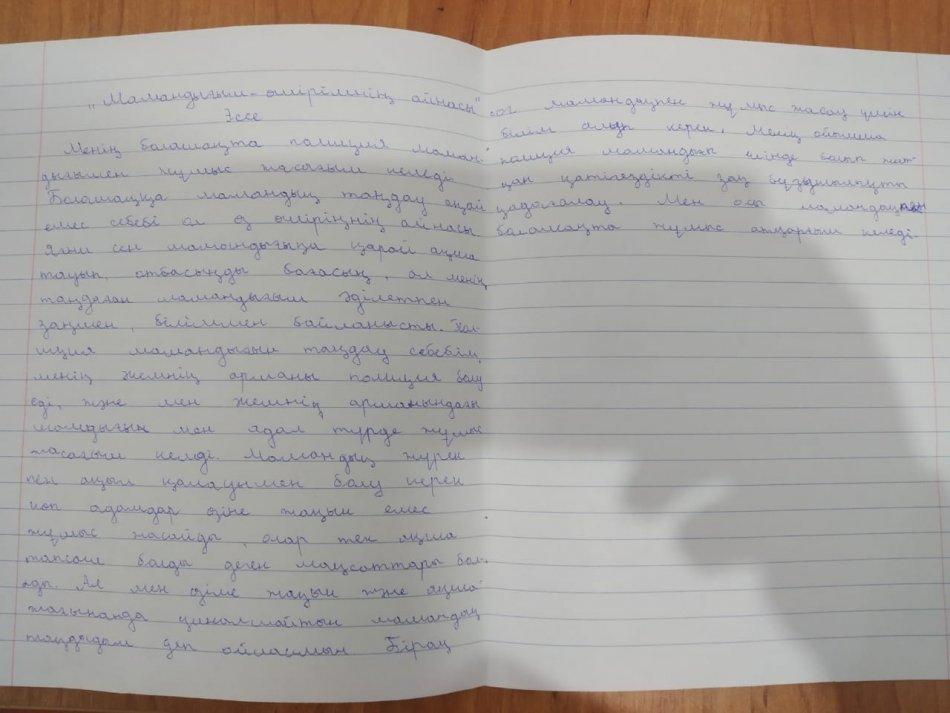 „Мамандығым - өмірімнің айнасы"
Эссе
Менің болашақта полиция маман-
дығымен жұмыс жасағым келеді.
Болашаққа мамандық таңдау оңай
емес себебі ол өз өміріңнің айнасы
яғни сен мамандығыңа қарай ақша
тауып, отбасыңды бағасың, ал менің
таңдаған мамандығым әділетпен
заңмен, біліммен байланысты. Пол-
иция мамандығын таңдау себебім,
менің әкемнің арманы полиция болу
еді, және мен әкемнің арманындағы
мамдығын мен адал түрде жұмыс
жасағым келеді. Мамандық жүрек
пен ақыл қалауымен болу керек
көп адамдар өзіне жақын емес
жұмыс жасайды, олар тек ақша
тапсам болды деген мақсаттары бол-
ады. Ал мен өзіме жақын және ақша
жағынанда қиналмайтын мамандық
таңдадым деп ойлаймын Бірақ
ол мамандықпен жұмыс жасау үшін
білім алып керек. Менің ойымша
полиция мамандық елінде болып жат-
қан қатігездікті заң бұзушылықты
қадағалау. Мен осы мамандықпен
болашақта жұмыс атқарғым келеді.